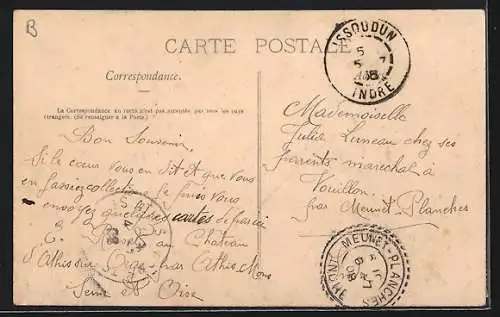 B
CARTE POSTALE
Correspondance.
La Correspondance au recto n'est pas acceptée par tous les pays
étrangers. (Se renseigner à la Poste.)
Bon Souvenir,
Si le cœur vous en dit et que vous
en fassiez collection je puis vous
envoyer quelques cartes de par ici
au Château
d'Athis sur Orge par Athis Mons
Seine et Oise
ISSOUDUN
INDRE
Mademoiselle
Julie Luneau chez ses
parents marechal à
Vouillon.
par Meunet-Planches
MEUNET-PLANCHES